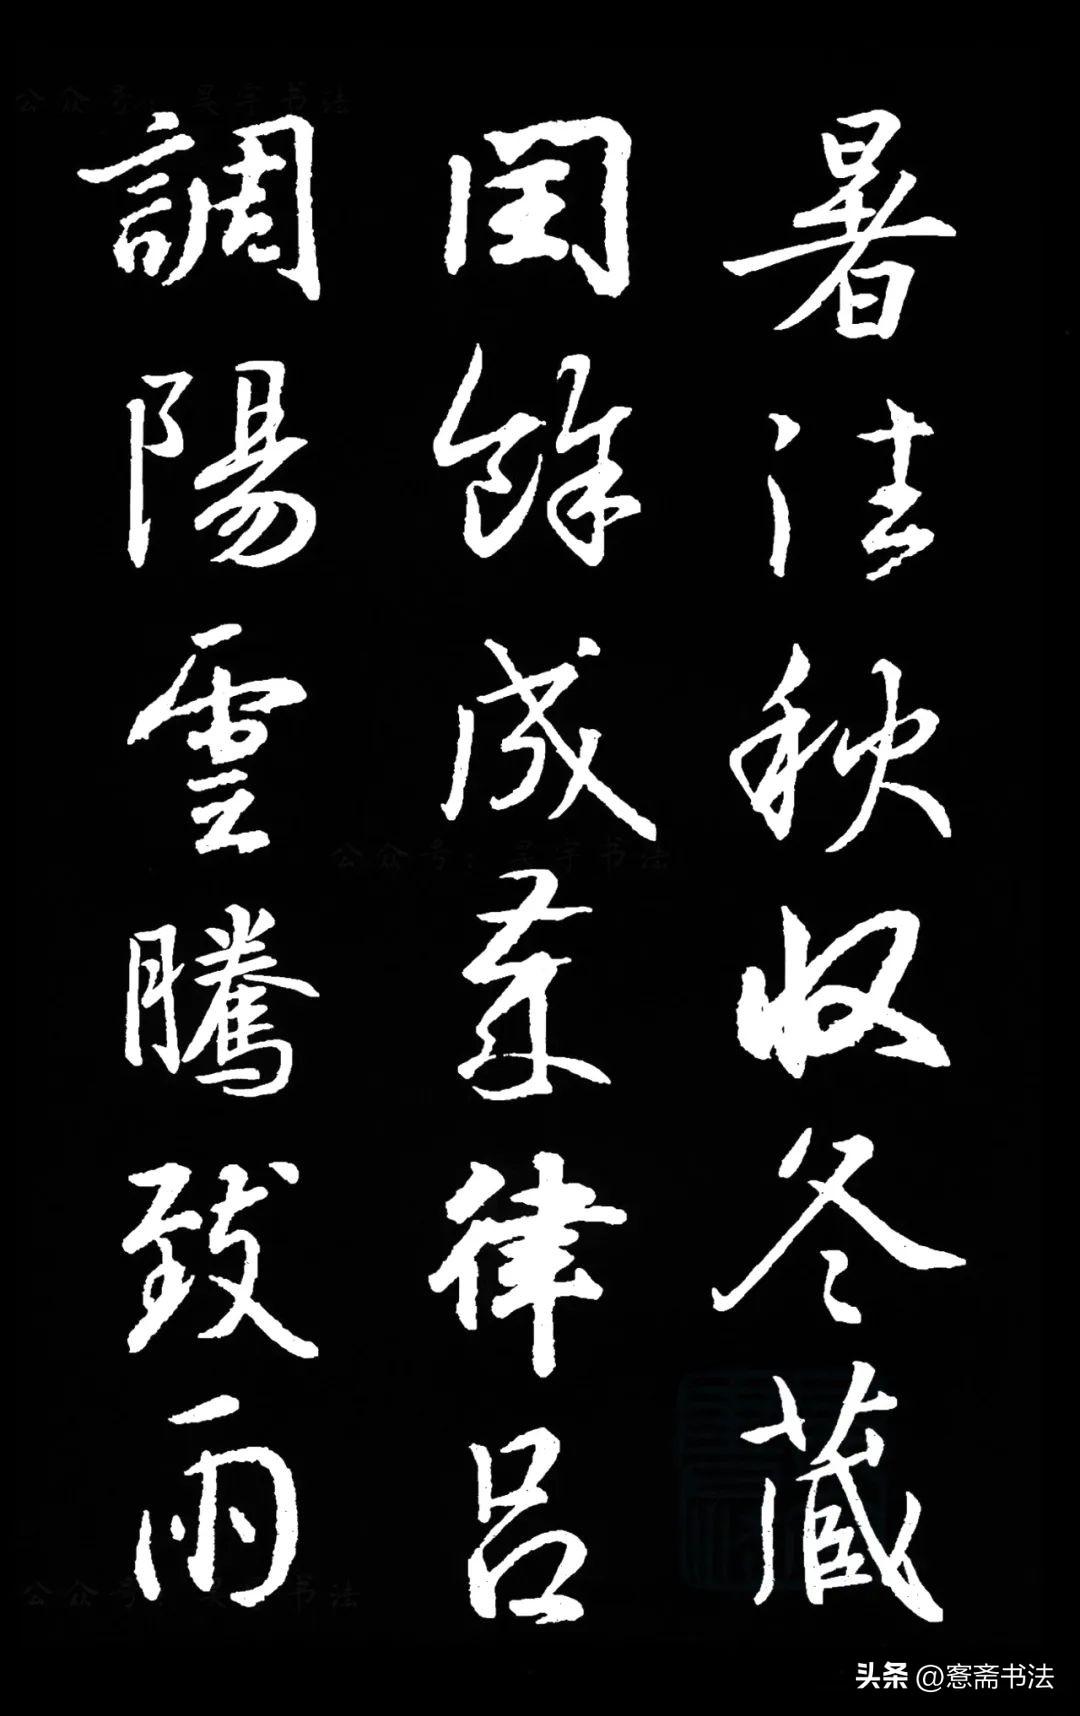 暑往秋收冬藏
閏餘成歲律呂
調陽雲騰致雨
公众号：昊宇书法
公众号：昊宇书法
公众号：昊宇书法
头条 @窓斋书法